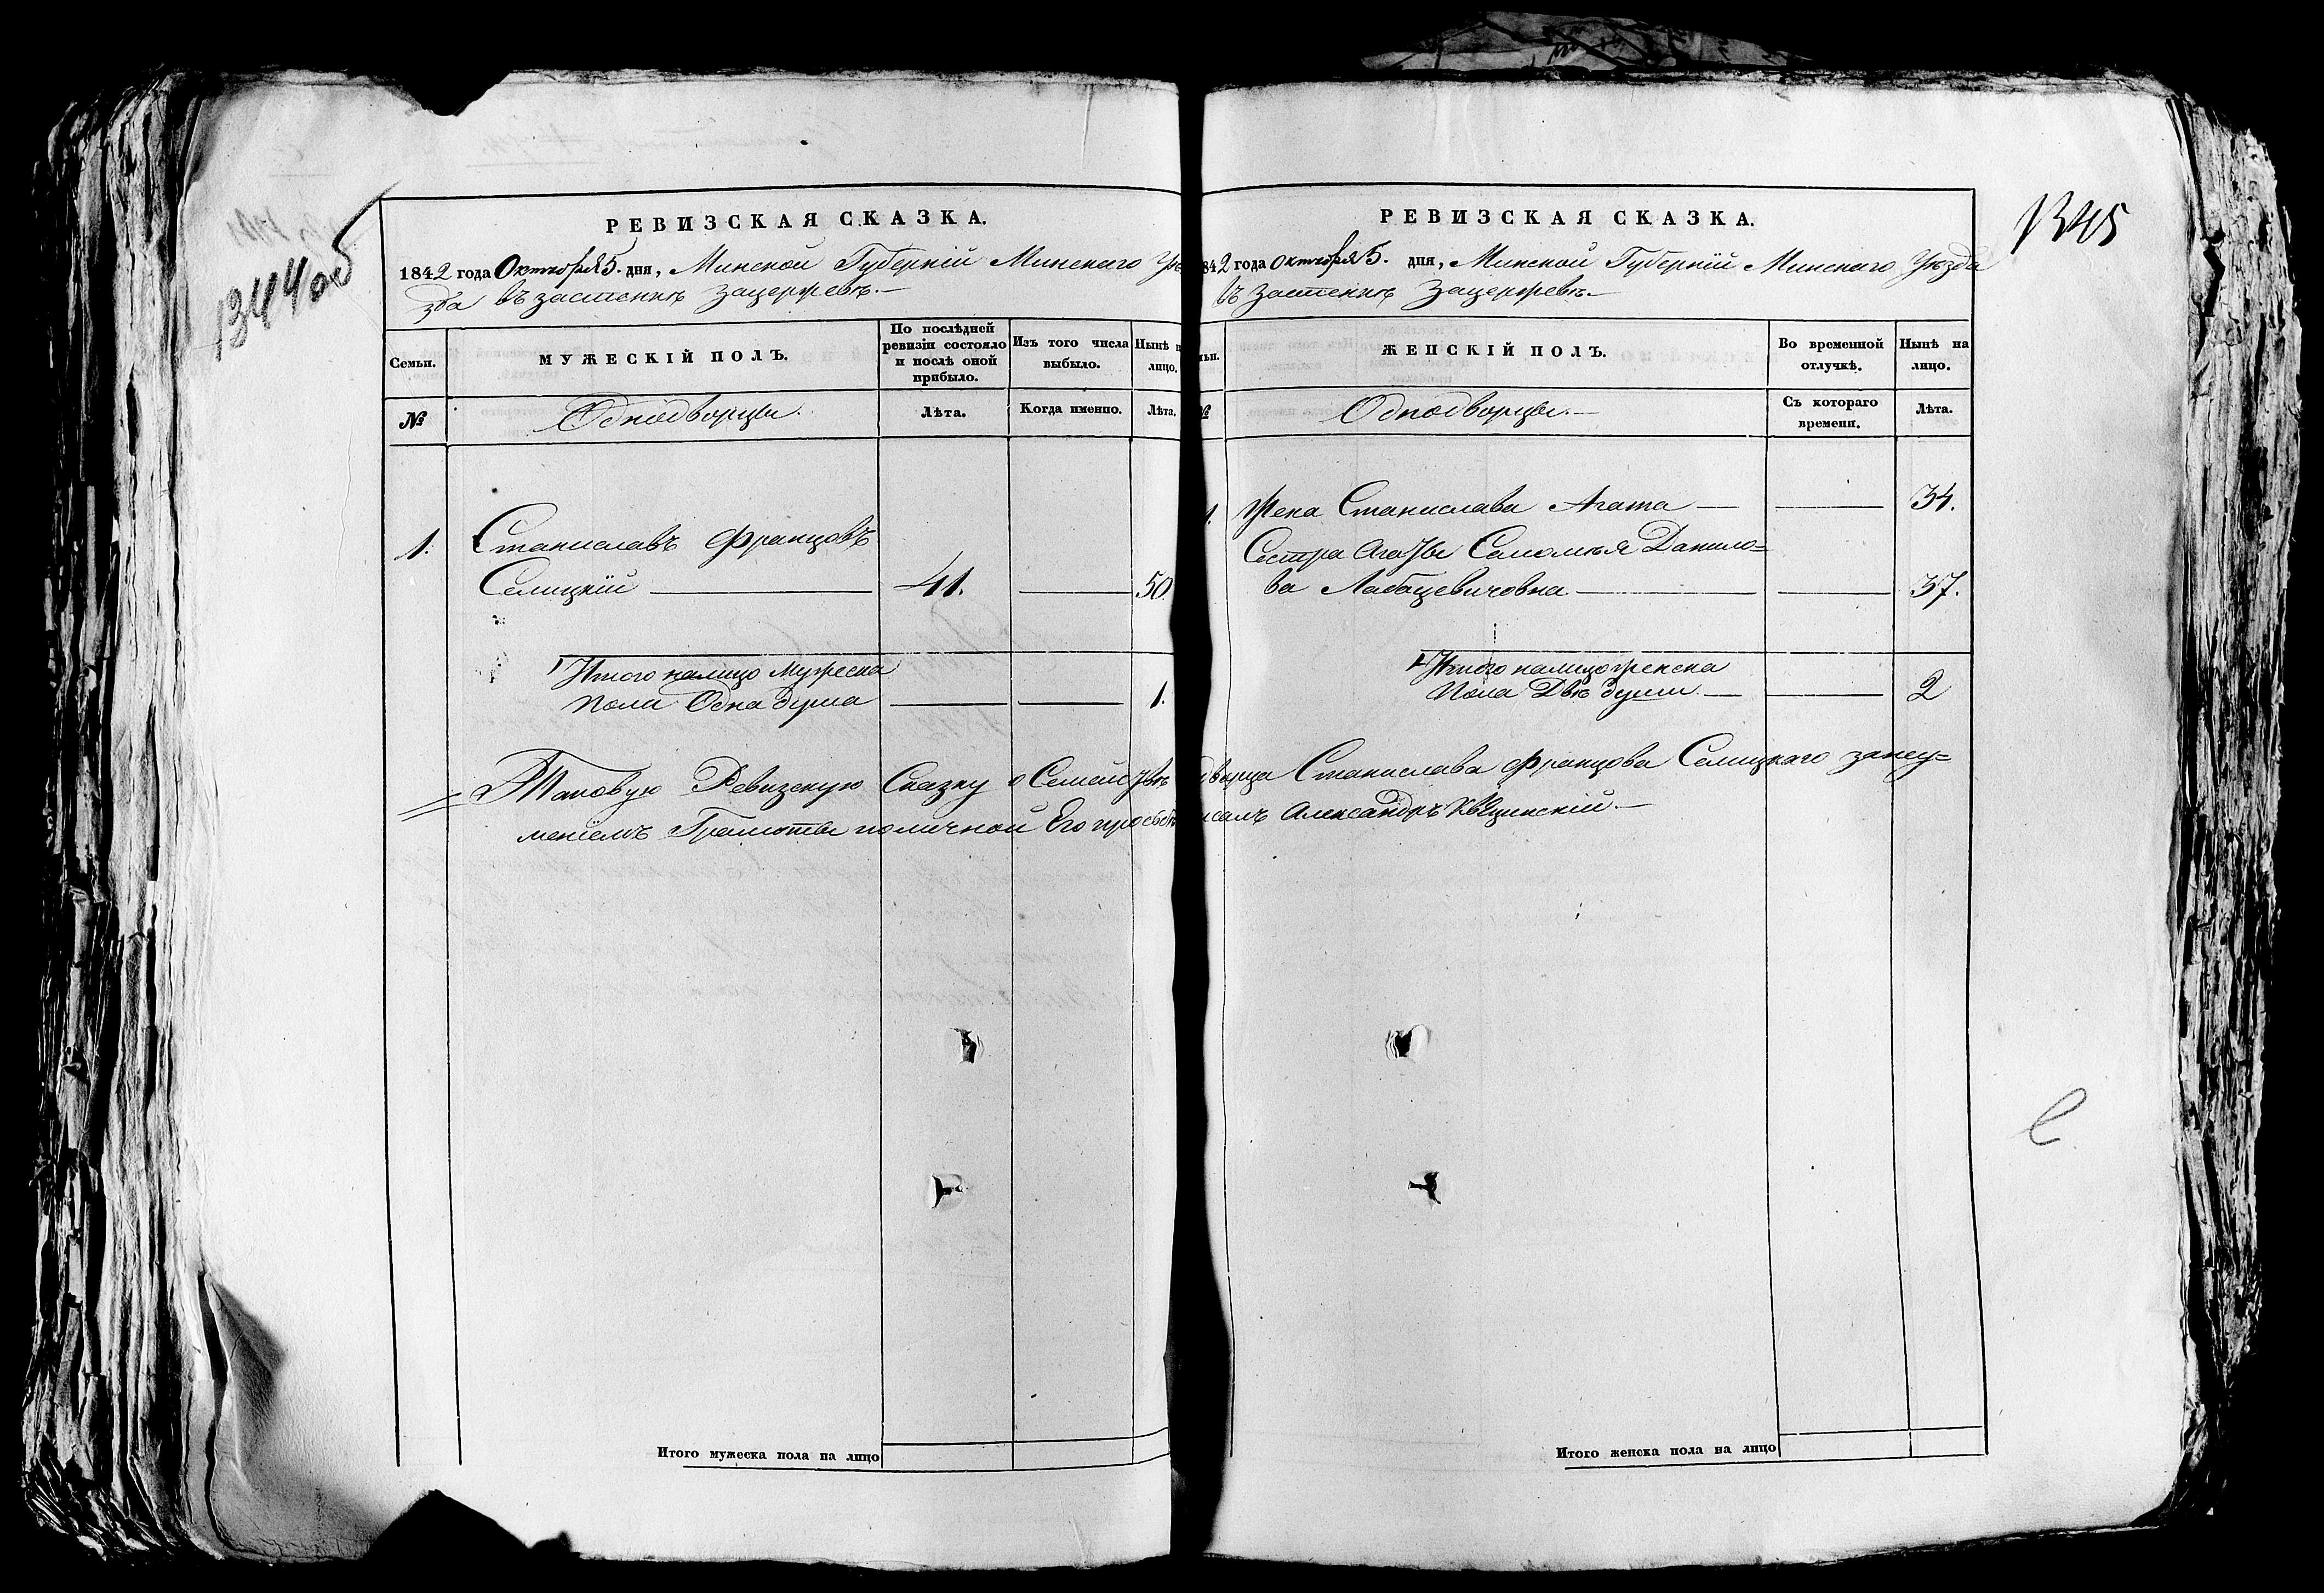 1344 об
РЕВИЗСКАЯ СКАЗКА.
1842 года Октября 5. дня, Минской Губерніи Минскаго Уѣ
зда въ застенкѣ Зацержевѣ.—
Семьи.
МУЖЕСКІЙ ПОЛЪ.
По послѣдней ревизіи состояло и послѣ оной прибыло.
Изъ того числа выбыло.
Нынѣ н лицо.
№
Однодворцы.
Лѣта.
Когда именно.
Лѣта.
1. Станиславъ Францовъ
Селицкій — 41. — 50.
Итого налицо Мужеска
Пола Одна душа — — 1.
Таковую Ревизскую Сказку о Семействѣ
меніемъ Грамоты по личной Его прозьбѣ
Итого мужеска пола на лицо
1345
РЕВИЗСКАЯ СКАЗКА.
842 года октября 5. дня, Минской Губерніи Минскаго Уѣзда
въ Застенкѣ Зацержевѣ.—
ЖЕНСКІЙ ПОЛЪ.
Во временной отлучкѣ.
Нынѣ на лицо.
№
Однодворцы.—
Съ котораго времени.
Лѣта.
1. Жена Станислава Агата — — 34.
Сестра Агаты Саломѣя Данило=
ва Лабацевичовна — — 37.
Итого налицо женска
Пола Двѣ души. — — 2
дворца Станислава Францова Селицкаго занеу=
исалъ Александръ
Итого женска пола на лицо